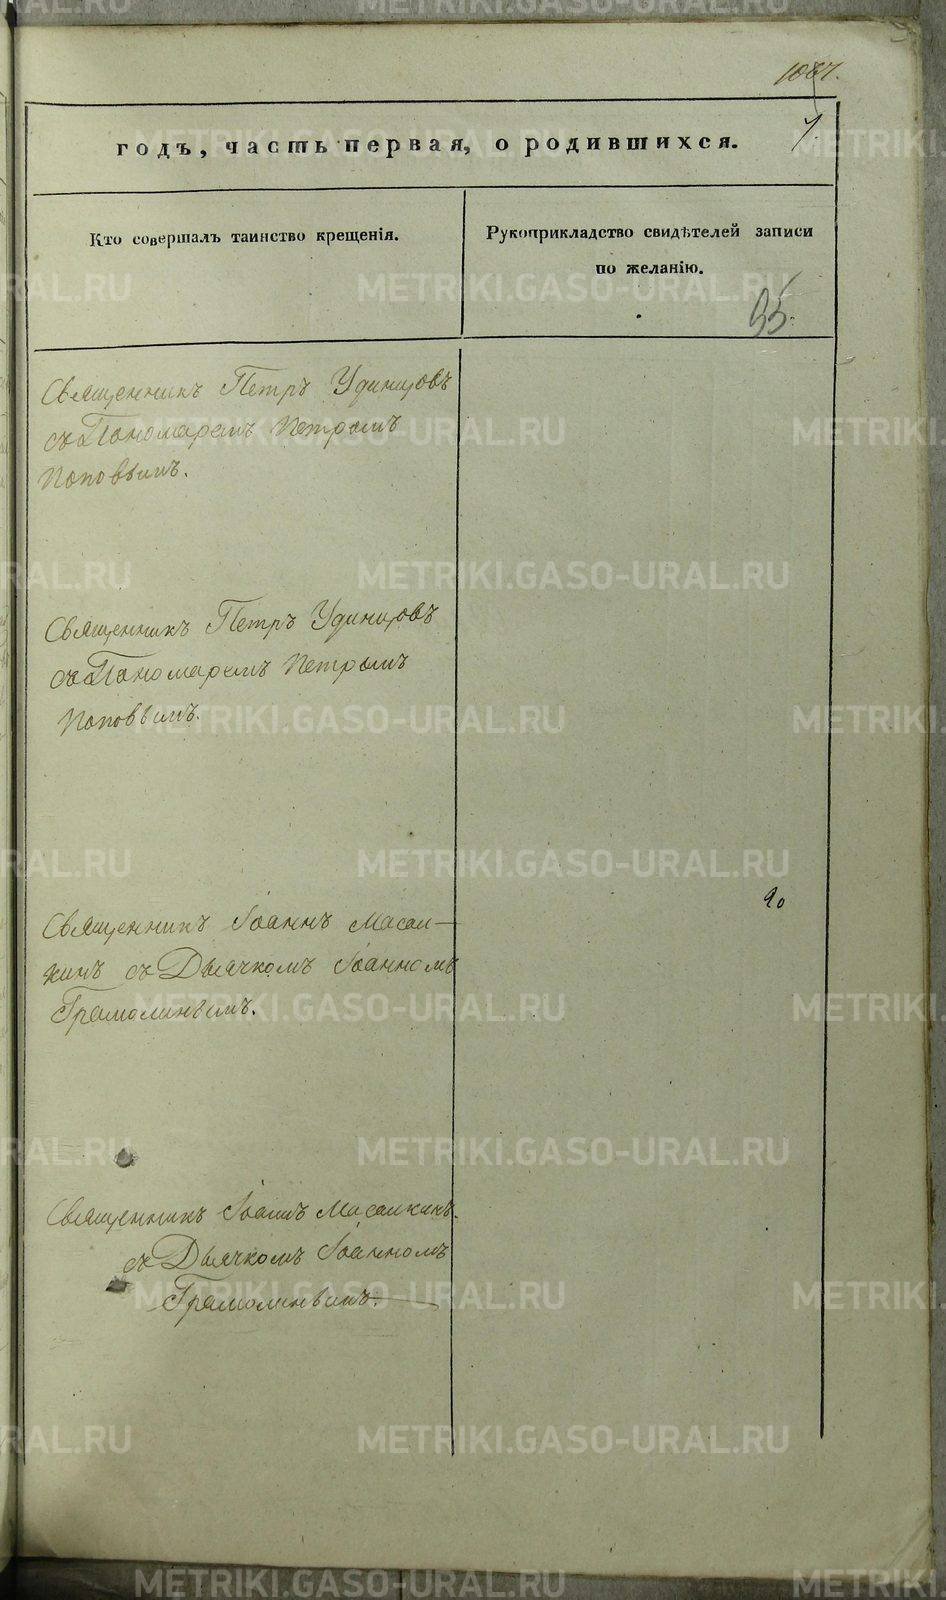 1087.
7.
годъ, часть первая, о родившихся.
Кто совершалъ таинство крещенія.
Рукоприкладство свидѣтелей записи
по желанію.
95.
Священникъ Петръ Удинцовъ
съ Пономаремъ Петромъ
Поповымъ.
Священникъ Петръ Удинцовъ
съ Пономаремъ Петромъ
Поповымъ.
Священникъ Іоаннъ Масал-
кинъ съ Дьячкомъ Іоанномъ
Грамолинымъ.
Священникъ Іоаннъ Масалкинъ
съ Дьячкомъ Іоанномъ
Грамолинымъ.
METRIKI.GASO-URAL.RU